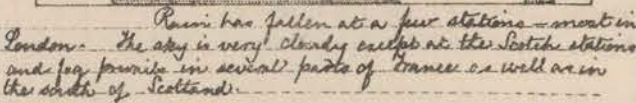 Rain has fallen at a few stations – most in
London. The sky is very cloudy except at the Scotch stations
and fog prevails in several parts of France as well as in
the south of Scotland.